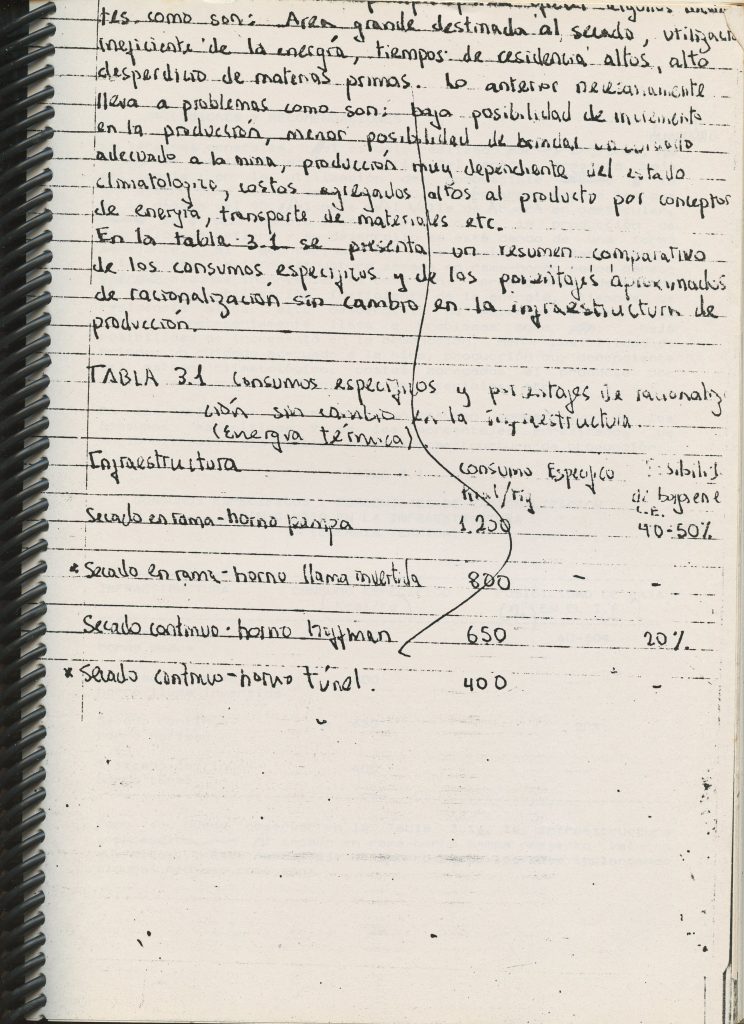 tes como son: Area grande destinada al secado, utilizaci
ineficiente de la energía, tiempos de residencia altos, alto
desperdicio de materias primas. Lo anterior necesariamente
lleva a problemas como son: baja posibilidad de incremento
en la producción, menor posibilidad de brindar un cuidado
adecuado a la mina, producción muy dependiente del estado
climatologico, costos agregados altos al producto por conceptos
de energía, transporte de materiales etc.
En la tabla 3.1 se presenta un resumen comparativo
de los consumos especificos y de los porentajes aproximados
de racionalización sin cambio en la infraestructura de
producción.
TABLA 3.1 Consumos especificos y porentajes de racionaliz
ción sin cambio en la infraestructura.
(Energía térmica)
Infraestructura Consumo Especifico
de
Secado en rama-horno pampa 1.200 40-50%
* Secado en rama-horno llama invertida 800 - -
Secado continuo-horno Hoffman 650 20%
* Secado continuo-horno túnel. 400 -